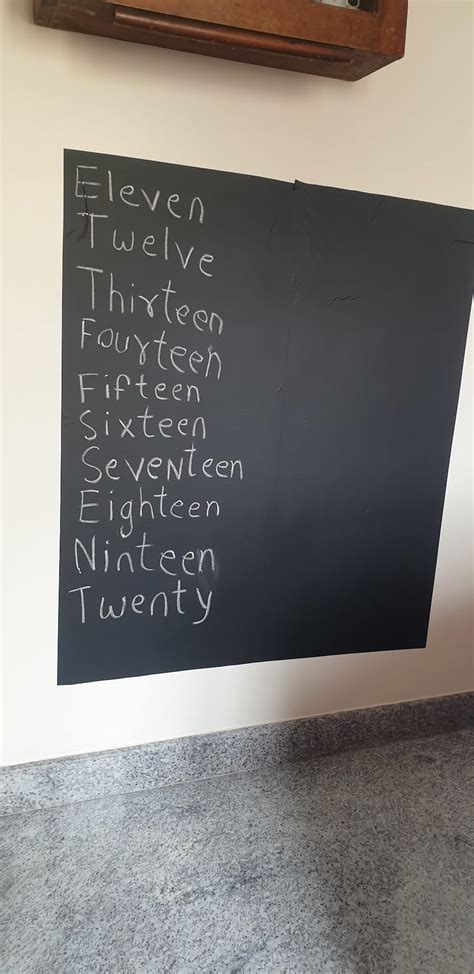 Eleven
Twelve
Thirteen
Fourteen
Fifteen
Sixteen
SeveNteen
Eighteen
Ninteen
Twenty